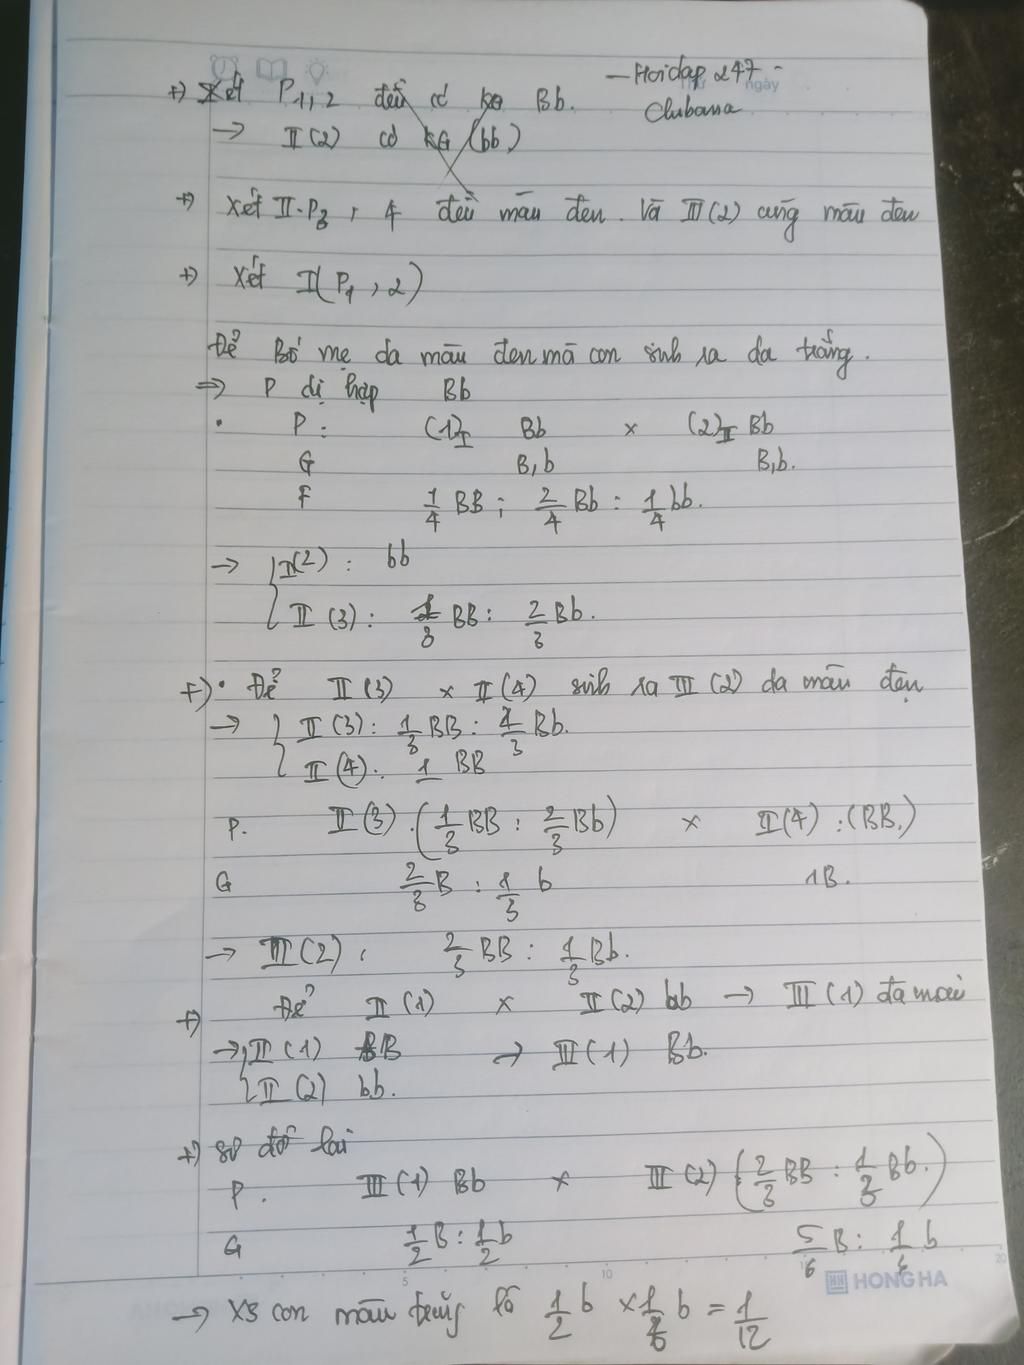 - Hoidap 247 -
Clubana
+) Xét P1,2 đều có KG Bb.
→ II (2) có KG (bb)
+) Xét II. P3, 4 đều màu đen. Và III (2) cũng màu đen
+) Xét I (P1, 2)
Để Bố mẹ da màu đen mà con sinh ra da trắng.
=> P dị hợp Bb
• P: (1)I Bb x (2)I Bb
G B, b B, b.
F 1/4 BB; 2/4 Bb : 1/4 bb.
→ II(2) : bb
II (3) : 1/3 BB : 2/3 Bb.
+) • Để II (3) x II (4) sinh ra III (2) da màu đen
→ II (3) : 1/3 BB : 2/3 Bb.
II (4) : 1 BB
P. II (3) . (1/3 BB : 2/3 Bb) x II (4) : (BB.)
G 2/3 B : 1/3 b 1B.
→ III (2) : 2/3 BB : 1/3 Bb.
+) Để II (1) x II (2) bb → III (1) da màu
→ II (1) BB → III (1) Bb.
II (2) bb.
+) Sơ đồ lai
P. III (1) Bb x III (2) (2/3 BB : 1/3 Bb.)
G 1/2 B : 1/2 b 5/6 B : 1/6 b
HH HONG HA
→ XS con màu trắng là 1/2 b x 1/6 b = 1/12